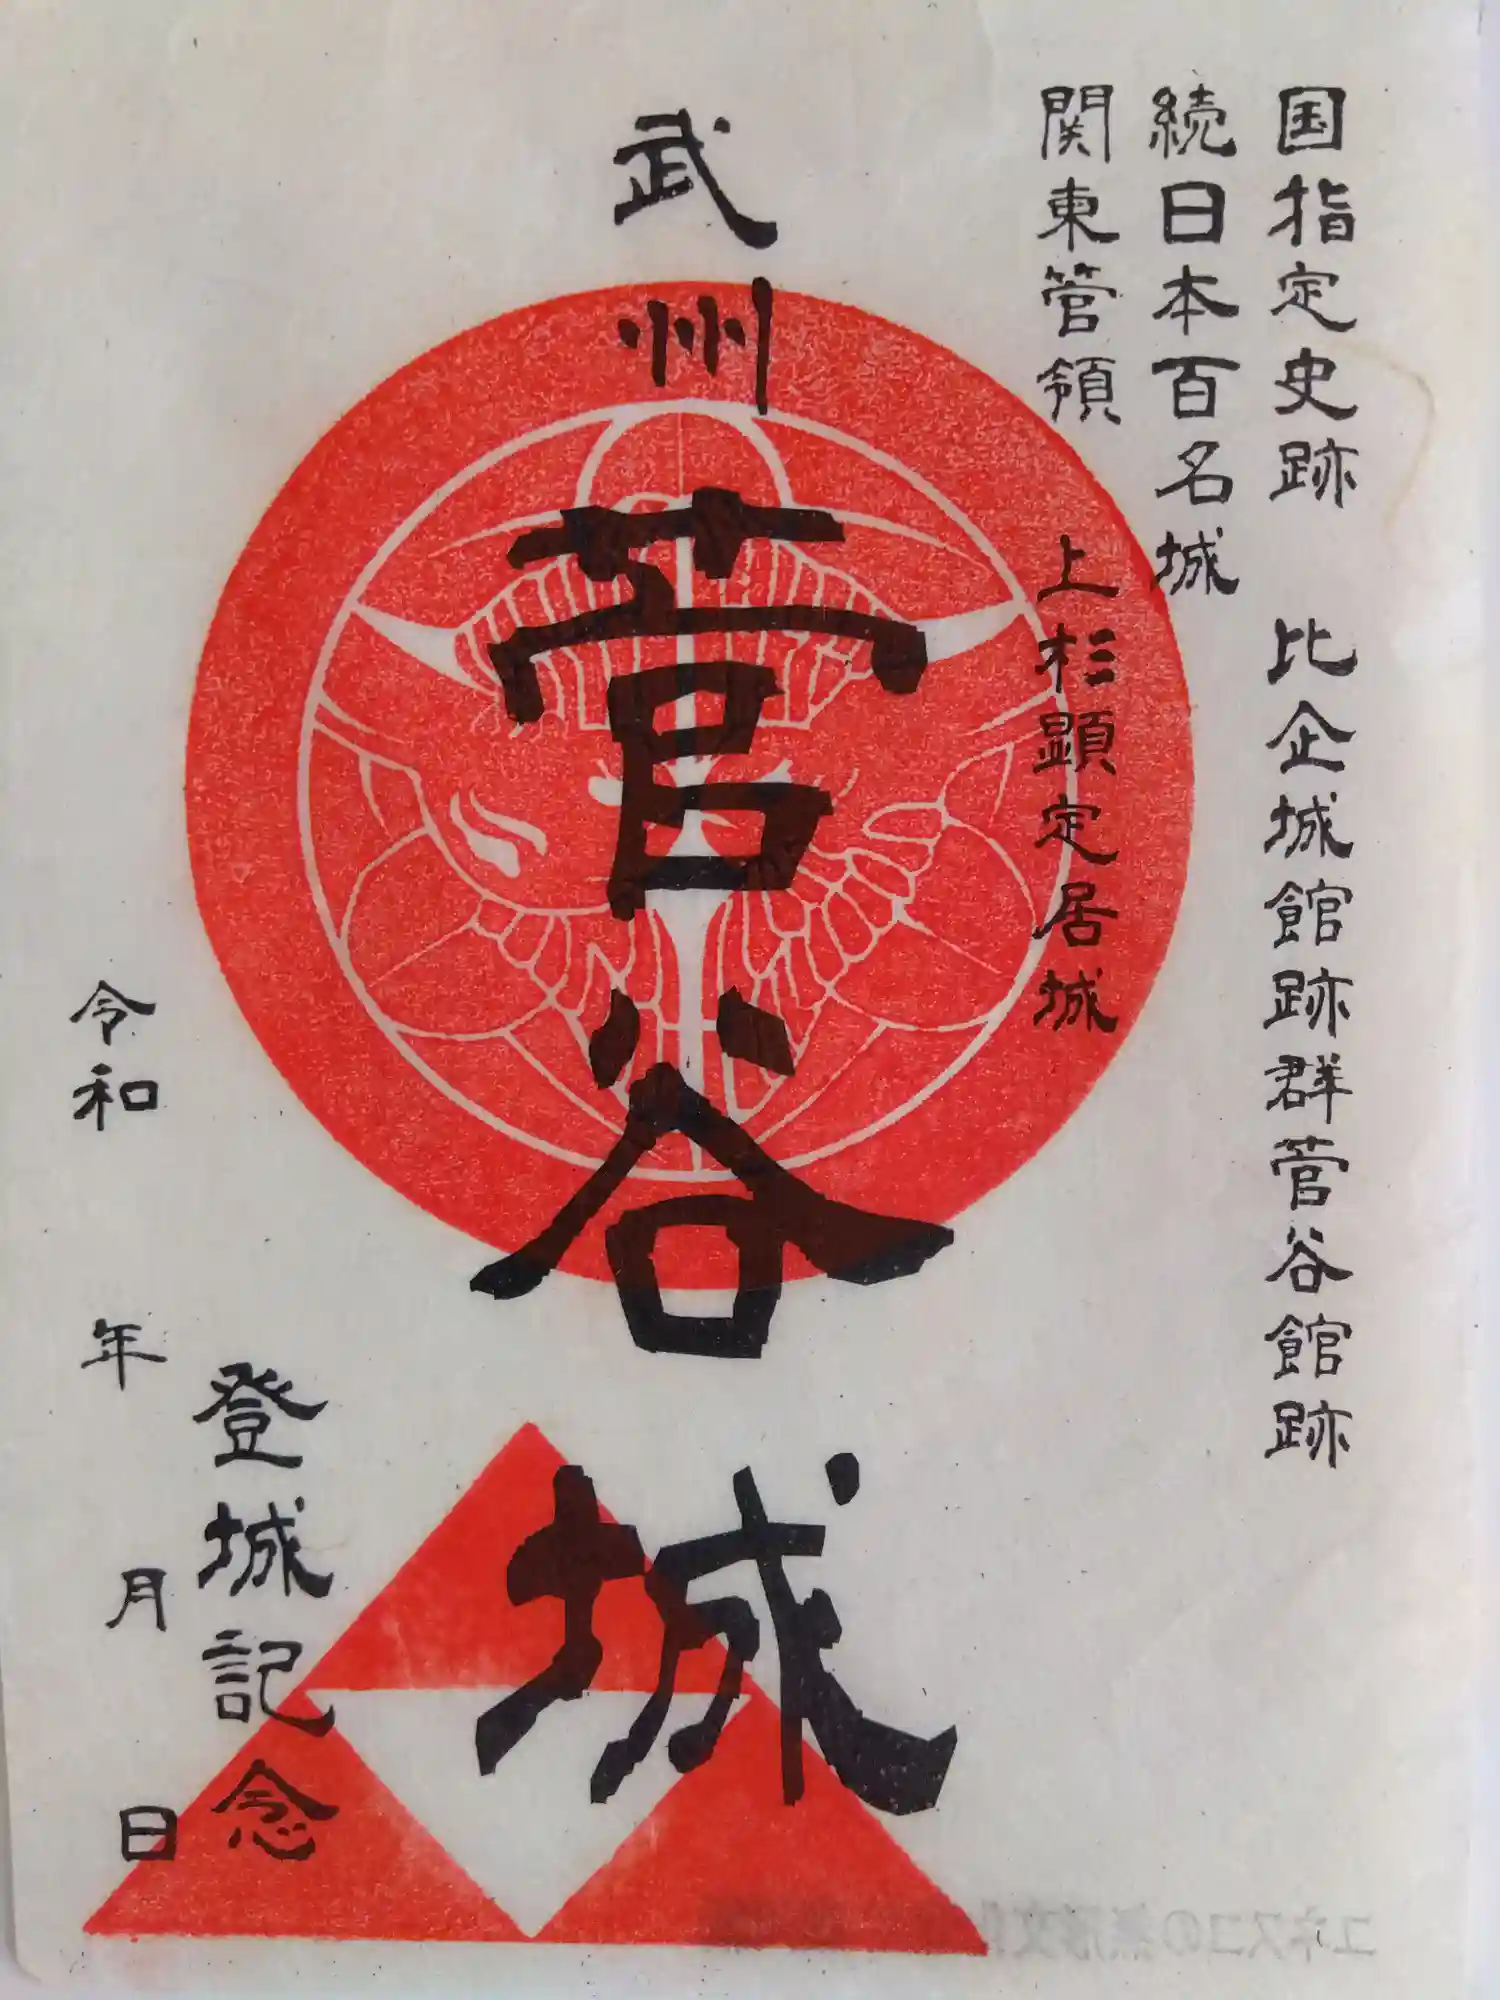 国指定史跡 比企城館跡群菅谷館跡
続日本百名城
関東管領 上杉顕定居城
武州 菅谷城
登城記念
令和 年 月 日